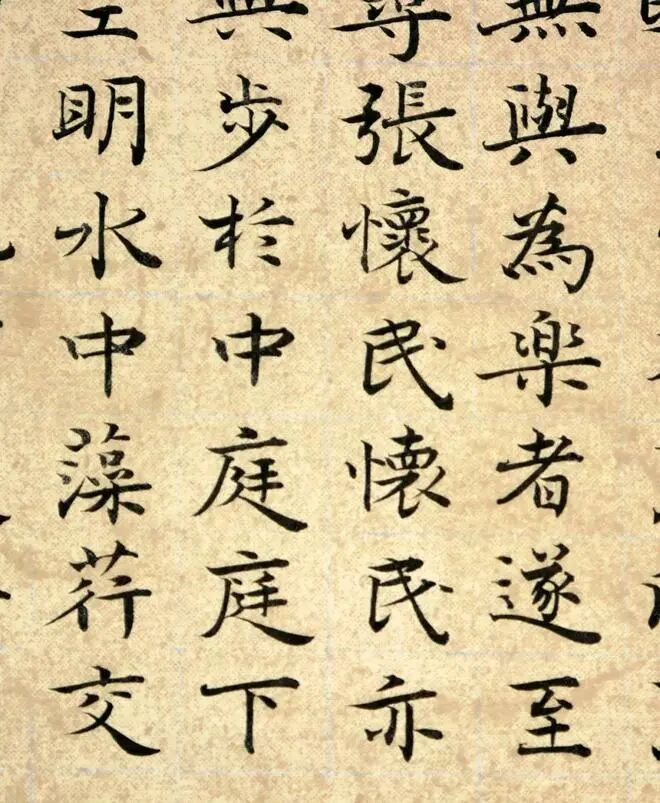 無與為楽者遂至
尋張懷民懐民亦
與步於中庭庭下
明水中藻荇交